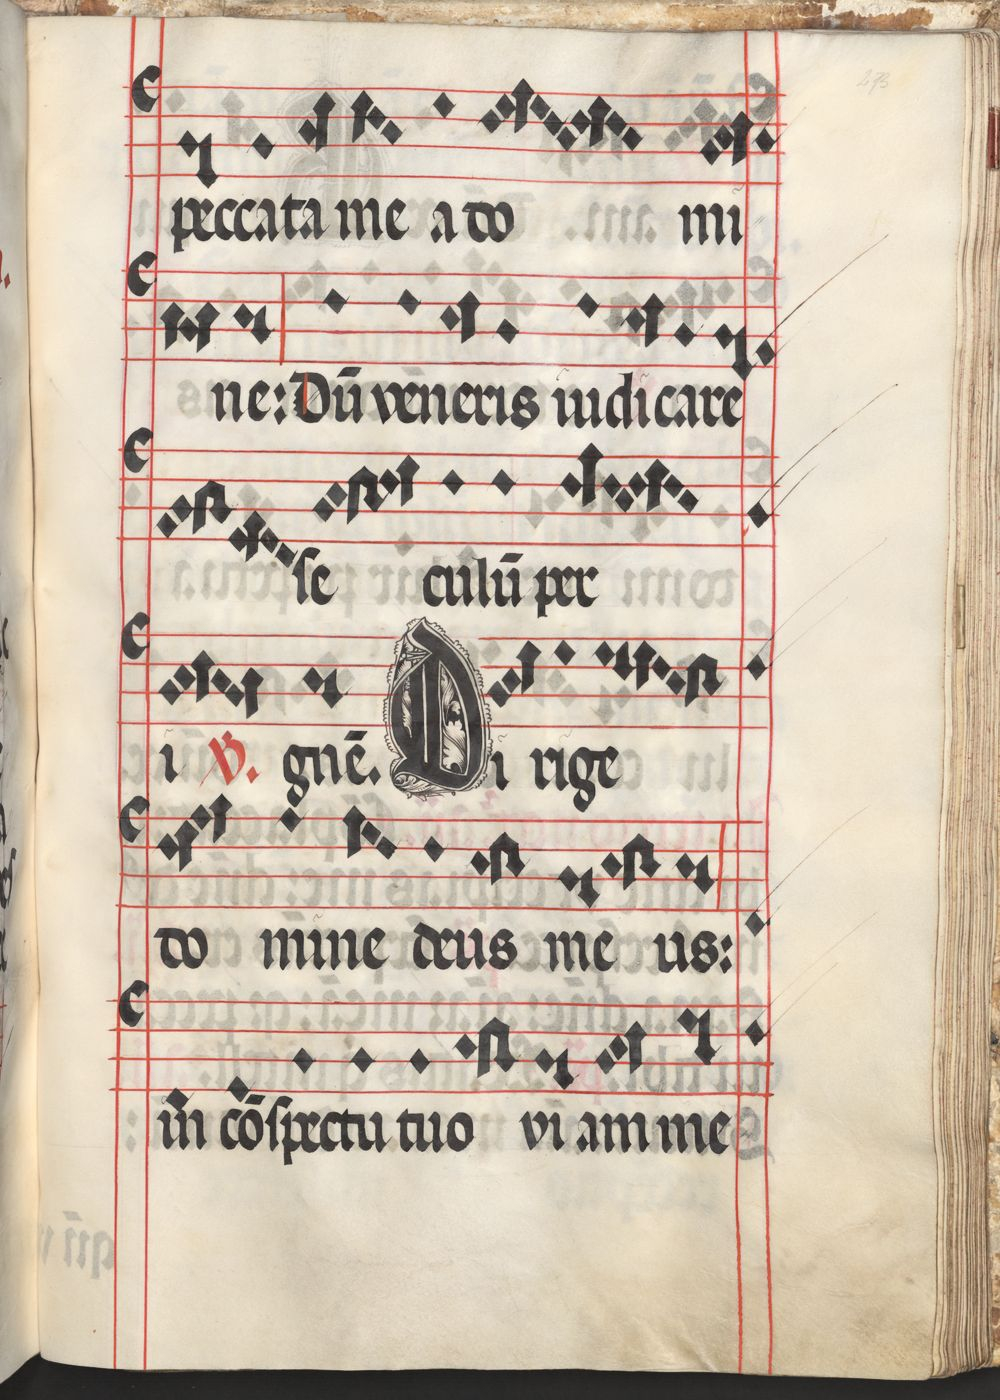 peccata me a do mi
ne: Dū veneris iudicare
se culū per
i V. gnē. Di rige
do mine deus me us:
in cōspectu tuo vi am me